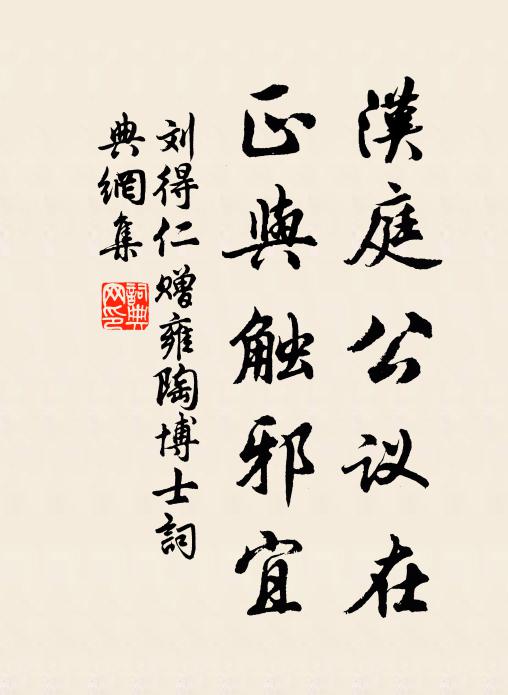 漢庭公议在
正與触邪宜
刘得仁赠雍陶博士詞
典網集
詞典网印